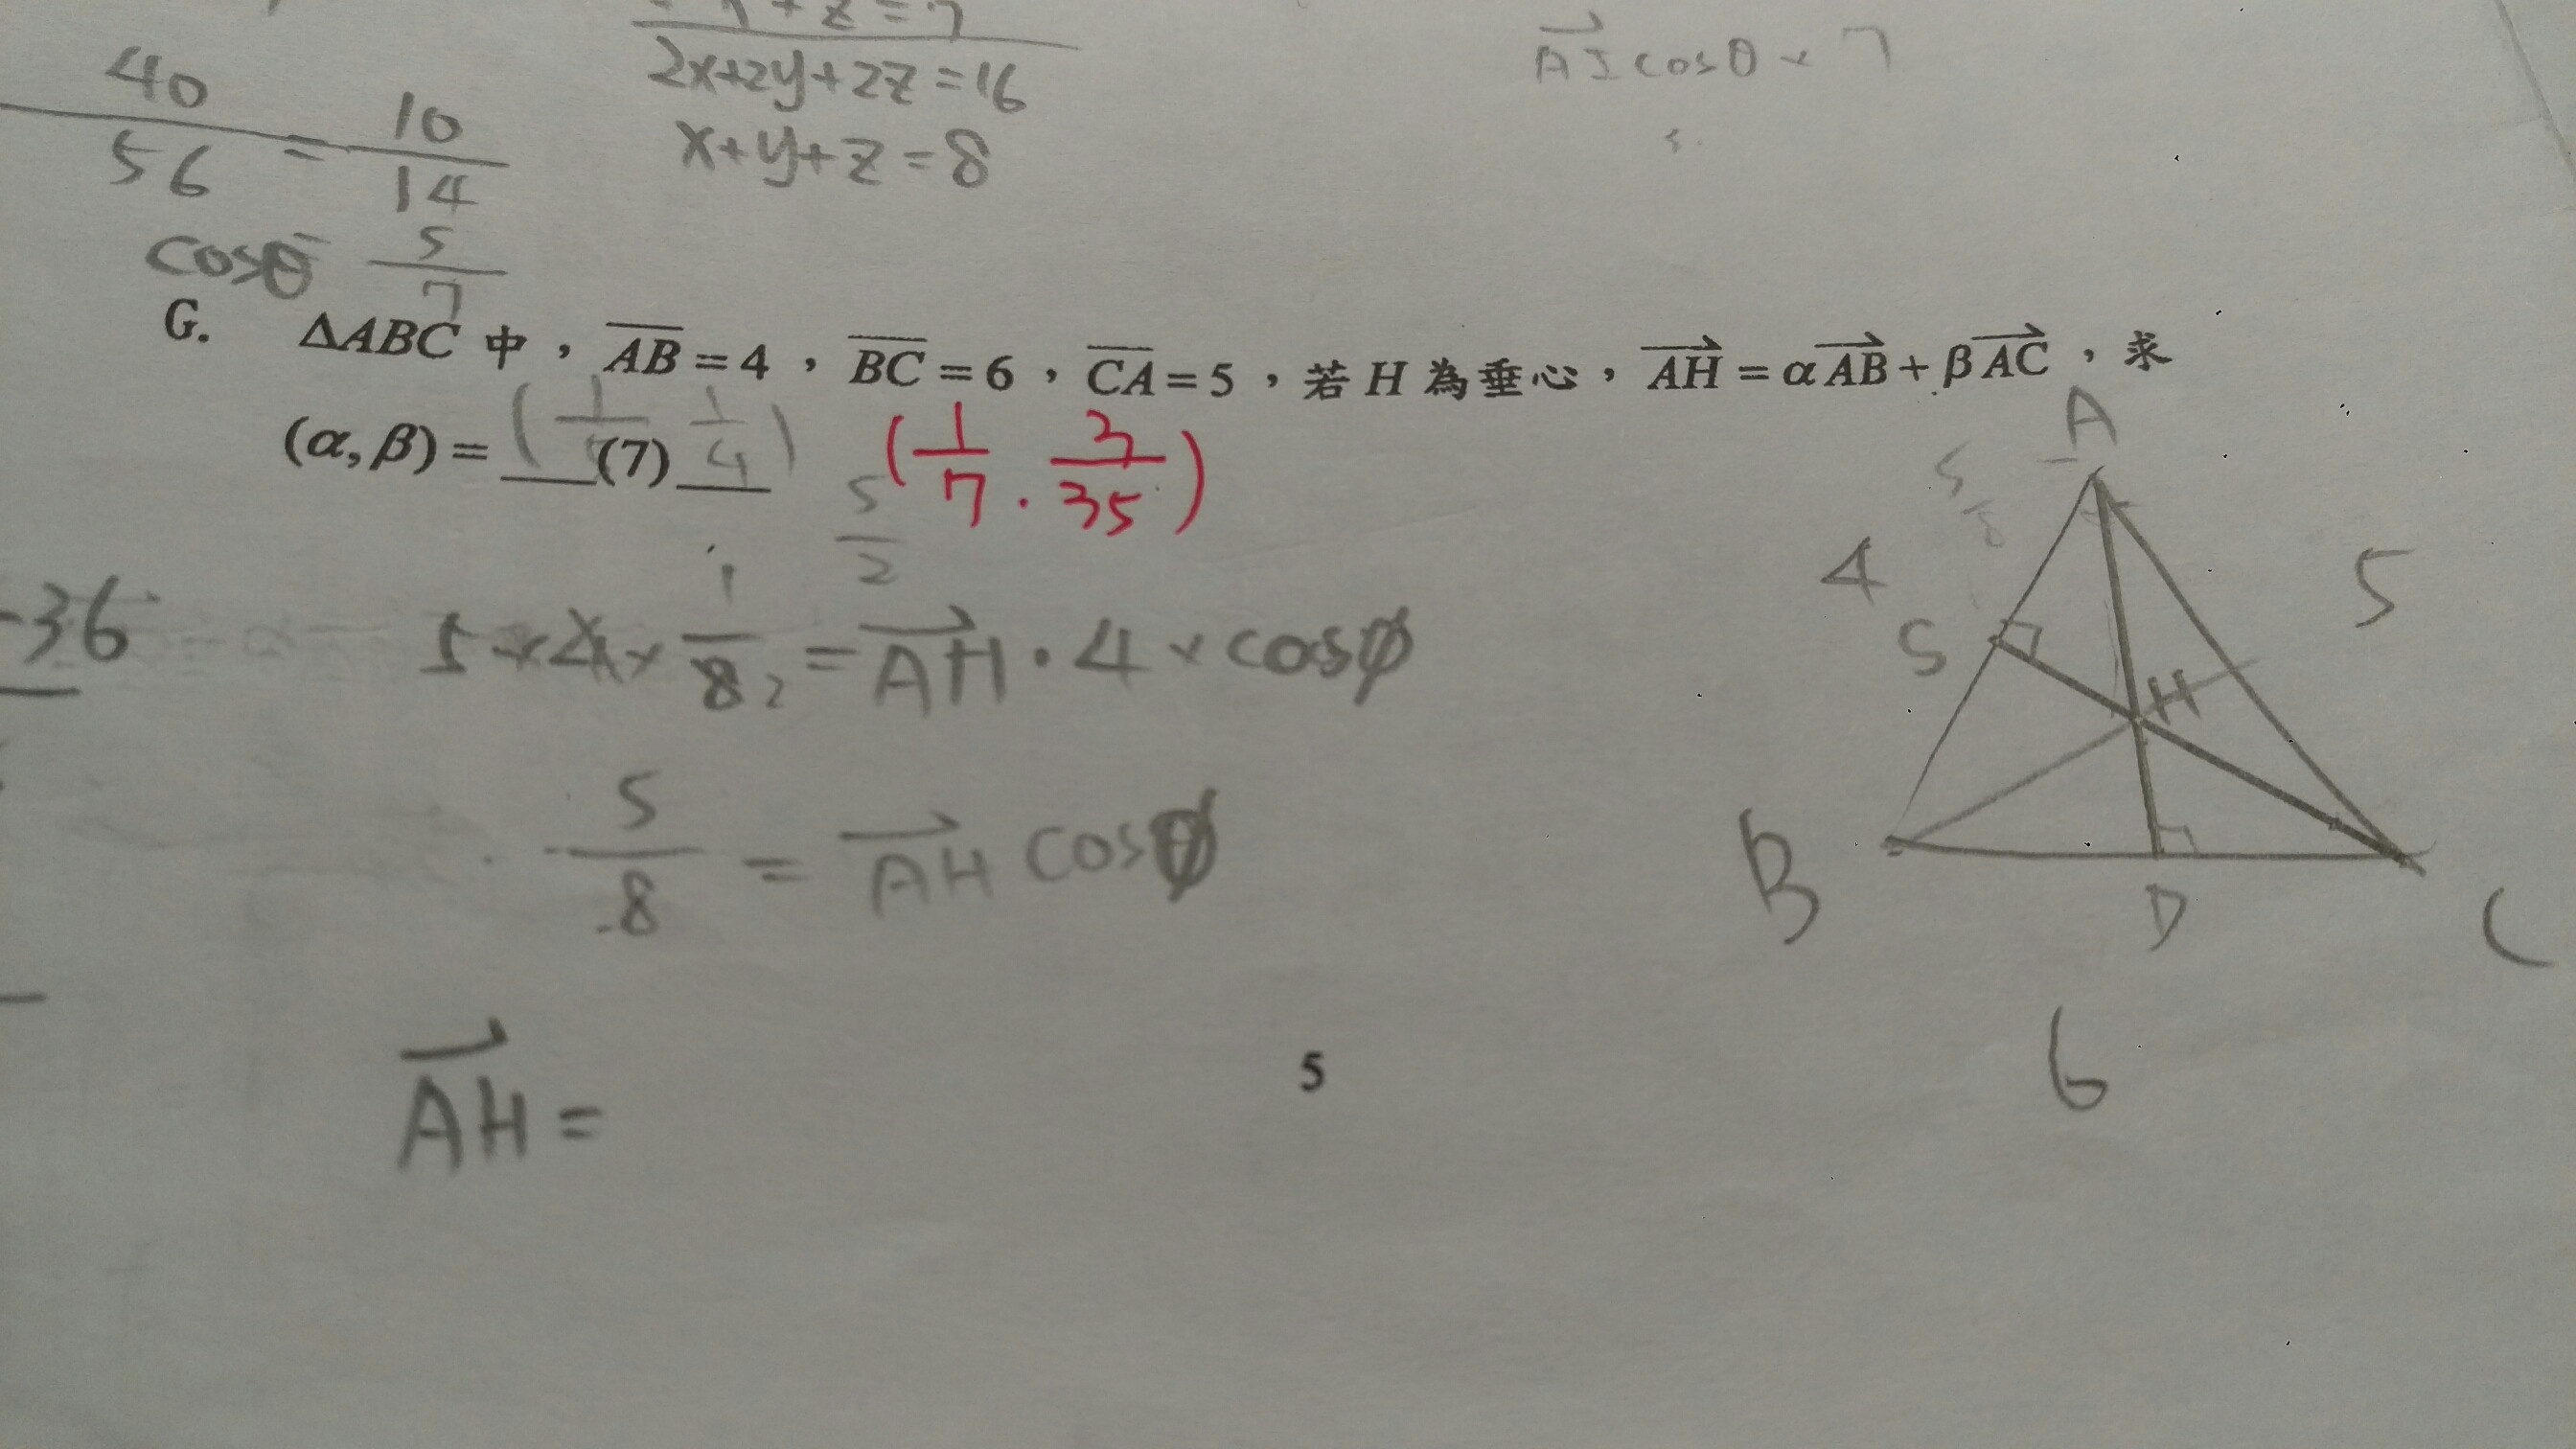 40/56 = 10/14
cosθ = 5/7
2x+2y+2z=16
x+y+z=8
AI cosθ × 7
G. ΔABC 中，AB=4，BC=6，CA=5，若 H 為垂心，AH=αAB+βAC，求
(α,β)=(7)
1/4)
(1/7, 3/35)
5/2
-36
5×4×1/8 = AH·4×cosφ
5/8 = AH cosφ
AH =
A
4
5
S
H
B
D
C
6
5